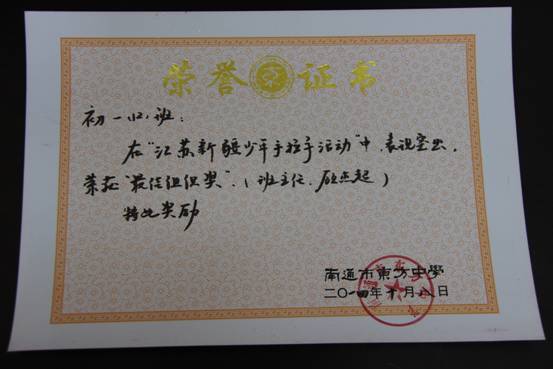 荣誉证书
初一(12)班:
在“江苏新疆少年手拉手活动”中,表现突出,
荣获“最佳组织奖”。(班主任:
特此奖励
南通市东方中學
二〇一四年十月八日